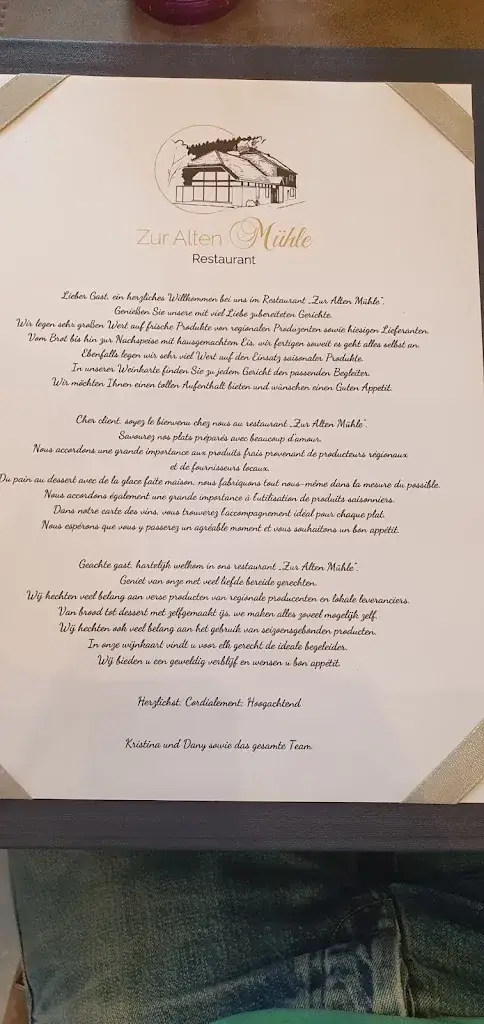 Zur Alten Mühle
Restaurant
Lieber Gast, ein herzliches Willkommen bei uns im Restaurant „Zur Alten Mühle“.
Genießen Sie unsere mit viel Liebe zubereiteten Gerichte.
Wir legen sehr großen Wert auf frische Produkte von regionalen Produzenten sowie hiesigen Lieferanten.
Vom Brot bis hin zur Nachspeise mit hausgemachtem Eis, wir fertigen soweit es geht alles selbst an.
Ebenfalls legen wir sehr viel Wert auf den Einsatz saisonaler Produkte.
In unserer Weinkarte finden Sie zu jedem Gericht den passenden Begleiter.
Wir möchten Ihnen einen tollen Aufenthalt bieten und wünschen einen Guten Appetit.
Cher client, soyez le bienvenu chez nous au restaurant „Zur Alten Mühle“.
Savourez nos plats préparés avec beaucoup d'amour.
Nous accordons une grande importance aux produits frais provenant de producteurs régionaux
et de fournisseurs locaux.
Du pain au dessert avec de la glace faite maison, nous fabriquons tout nous-même dans la mesure du possible.
Nous accordons également une grande importance à l'utilisation de produits saisonniers.
Dans notre carte des vins, vous trouverez l'accompagnement idéal pour chaque plat.
Nous espérons que vous y passerez un agréable moment et vous souhaitons un bon appétit.
Geachte gast, hartelijk welkom in ons restaurant „Zur Alten Mühle“.
Geniet van onze met veel liefde bereide gerechten.
Wij hechten veel belang aan verse producten van regionale producenten en lokale leveranciers.
Van brood tot dessert met zelfgemaakt ijs, we maken alles zoveel mogelijk zelf.
Wij hechten ook veel belang aan het gebruik van seizoensgebonden producten.
In onze wijnkaart vindt u voor elk gerecht de ideale begeleider.
Wij bieden u een geweldig verblijf en wensen u bon appétit.
Herzlichst; Cordialement; Hoogachtend
Kristina und Dany sowie das gesamte Team